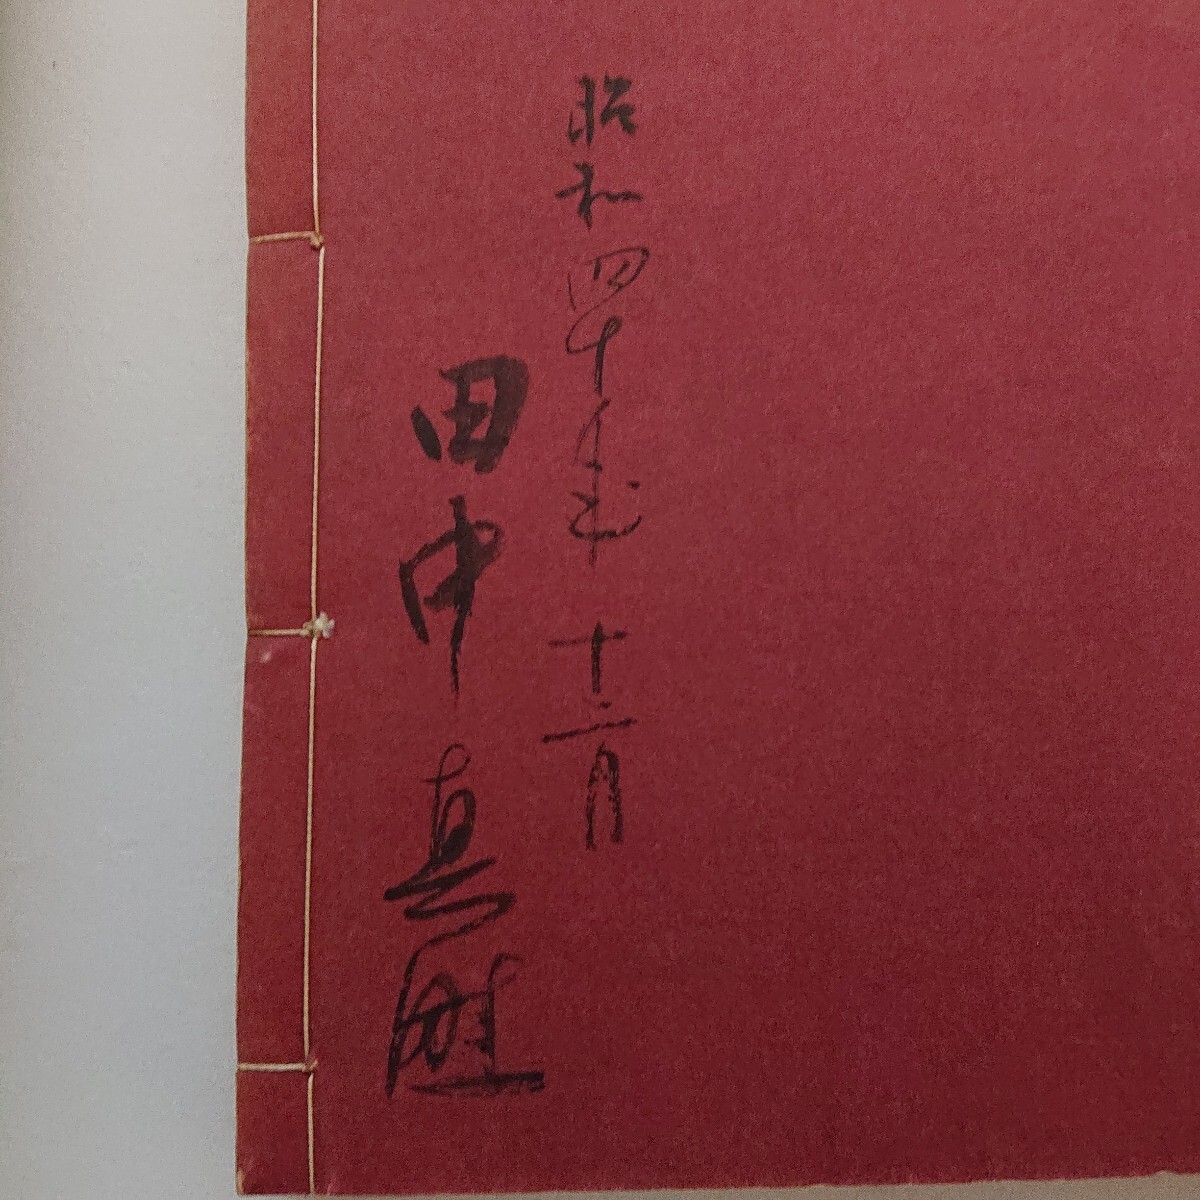 昭和四十年十二月
田中真